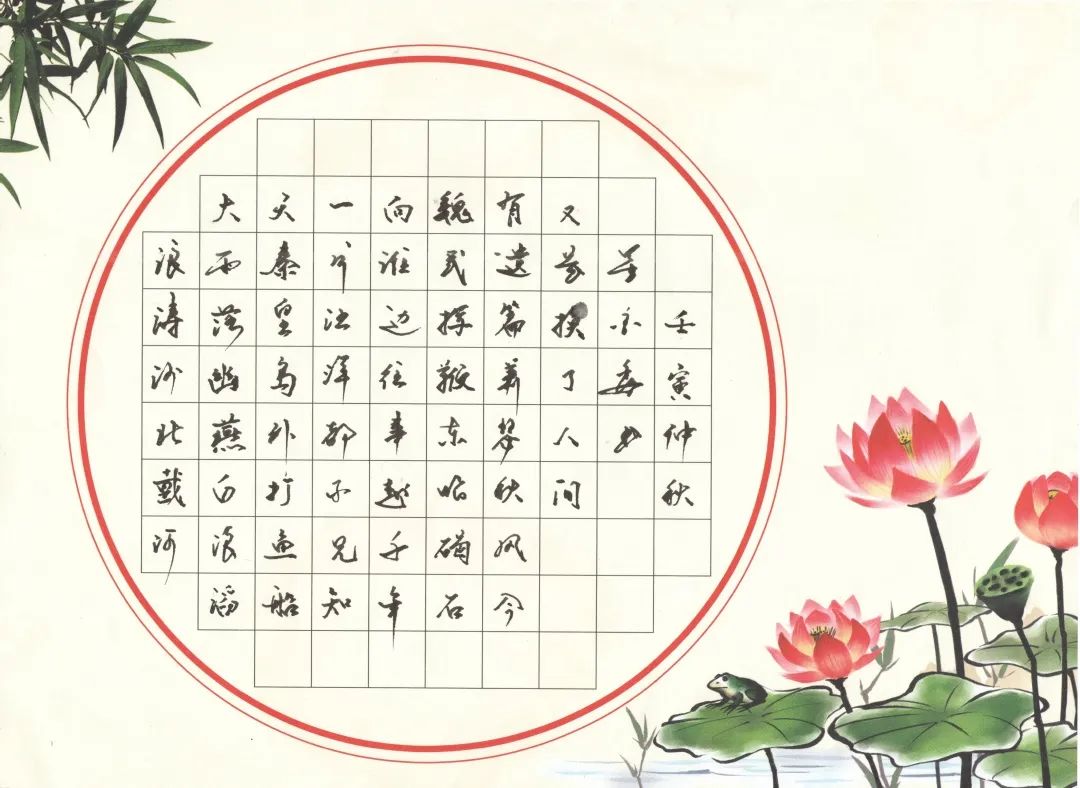 浪涛沙北戴河
大雨落幽燕白浪滔
天秦皇岛外打鱼船
一片汪洋都不见知
向谁边往事越千年
魏武挥鞭东临碣石
有遗篇萧瑟秋风今
又是换了人间
壬寅仲秋